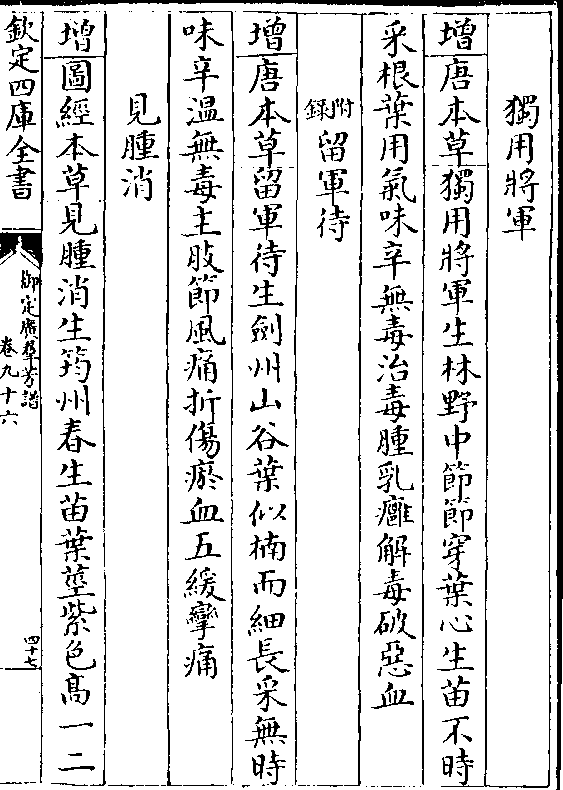 獨用將軍
增唐本草獨用將軍生林野中節節穿葉心生苗不時
采根葉用氣味辛無毒治毒腫乳癰解毒破惡血
附録留軍待
增唐本草留軍待生劍州山谷葉似楠而細長采無時
味辛溫無毒主肢節風痛折傷瘀血五緩攣痛
見腫消
增圖經本草見腫消生筠州春生苗葉莖紫色高一二
欽定四庫全書
御定廣羣芳譜
卷九十六
四十七